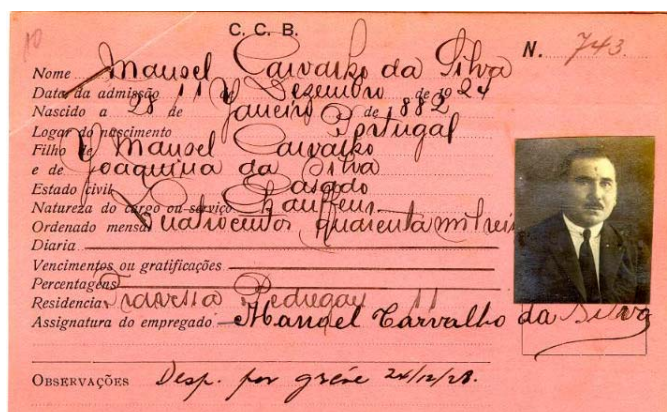 10
C. C. B.
N. 743.
Nome Manoel Carvalho da Silva
Data da admissão 11 de Dezembro de 1924
Nascido a 28 de Janeiro de 882
Logar do nascimento Portugal
Filho de Manoel Carvalho
e de Joaquina da Silva
Estado civil Casado
Natureza do cargo ou serviço Chauffeur
Ordenado mensal Quatrocentos quarenta mil reis
Diaria
Vencimentos ou gratificações
Percentagens
Residencia Travessa Pedregaes 11
Assignatura do empregado Manoel Carvalho da Silva
OBSERVAÇÕES Desp. por gréve 24/12/28.